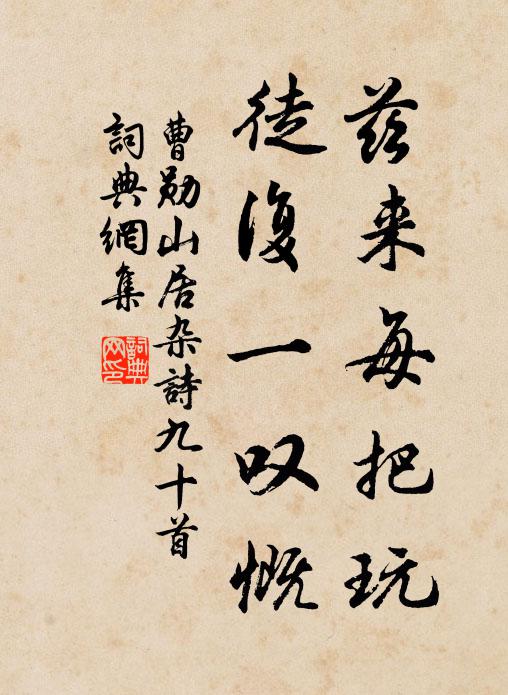 兹来每把玩
徒复一叹慨
曹勋山居杂詩九十首
詞典網集
詞典网印